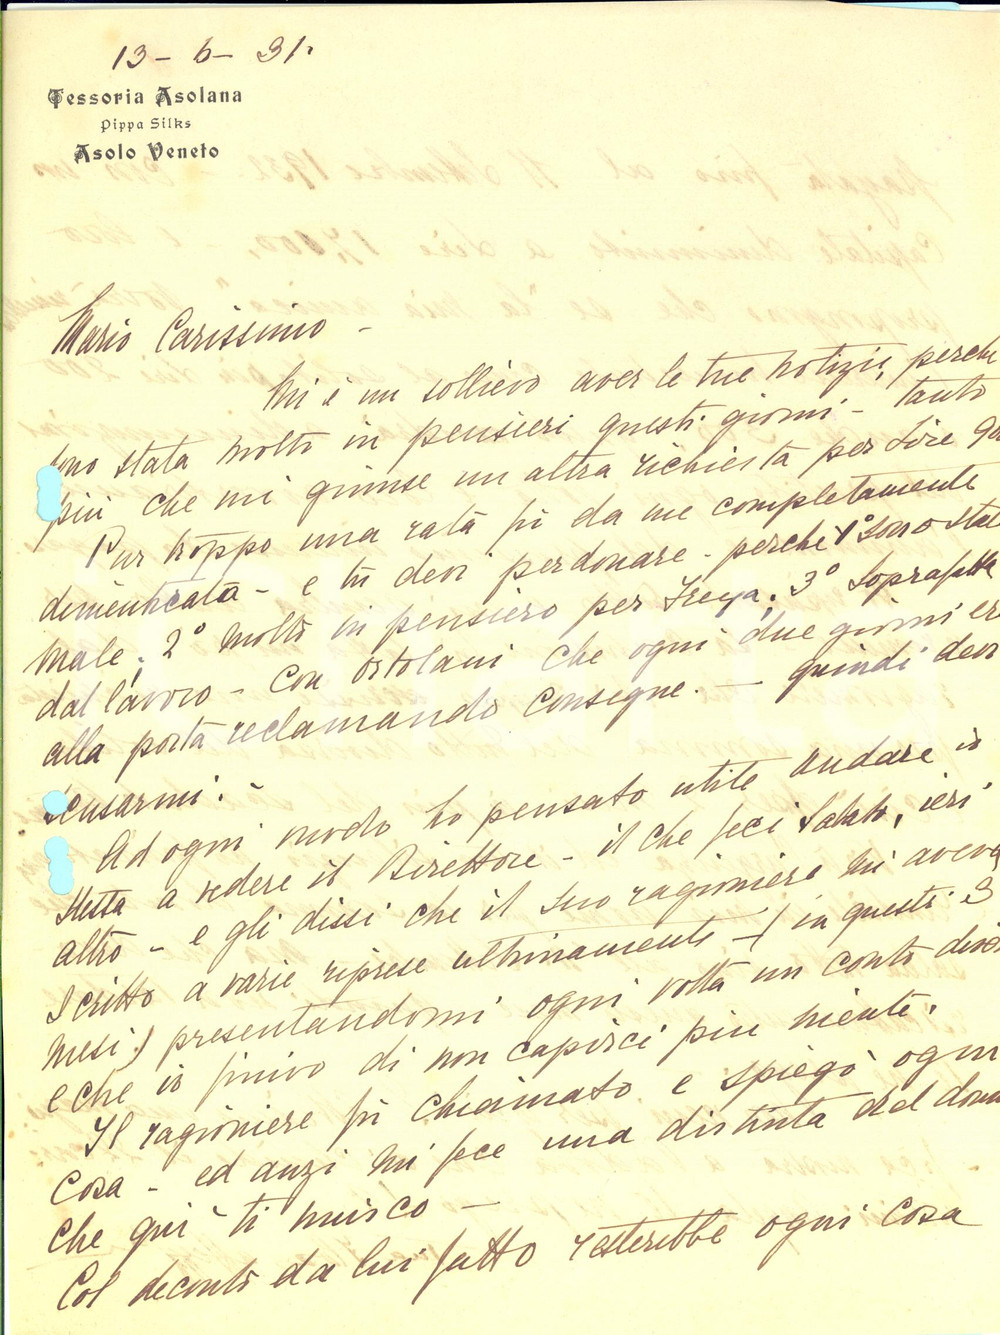 13 - 6 - 31.
Tessoria Asolana
Pippa Silks
Asolo Veneto
Mario Carissimo -
Mi è un sollievo aver le tue notizie, perchè
sono stata molto in pensieri questi giorni - tanto
più che mi giunse un altra richiesta per Lire
Pur troppo una rata fù da me completamente
dimenticata - e tu devi perdonare - perchè 1° sono stata
male; 2° molto in pensiero per Freya; 3° sopraffatta
dal lavoro - con Ortolani che ogni due giorni era
alla porta reclamando consegne. - quindi devi
scusarmi. -
Ad ogni modo ho pensato utile andare io
stessa a vedere il Direttore - il che feci Sabato, ieri
altro - e gli dissi che il suo ragioniere mi aveva
scritto a varie riprese ultimamente - (in questi 3
mesi) presentandomi ogni volta un conto
e che io finivo di non capirci più niente.
Il ragioniere fù chiamato e spiegò ogni
cosa - ed anzi mi fece una distinta del
che qui ti unisco -
Col deconto da lui fatto resterebbe ogni cosa